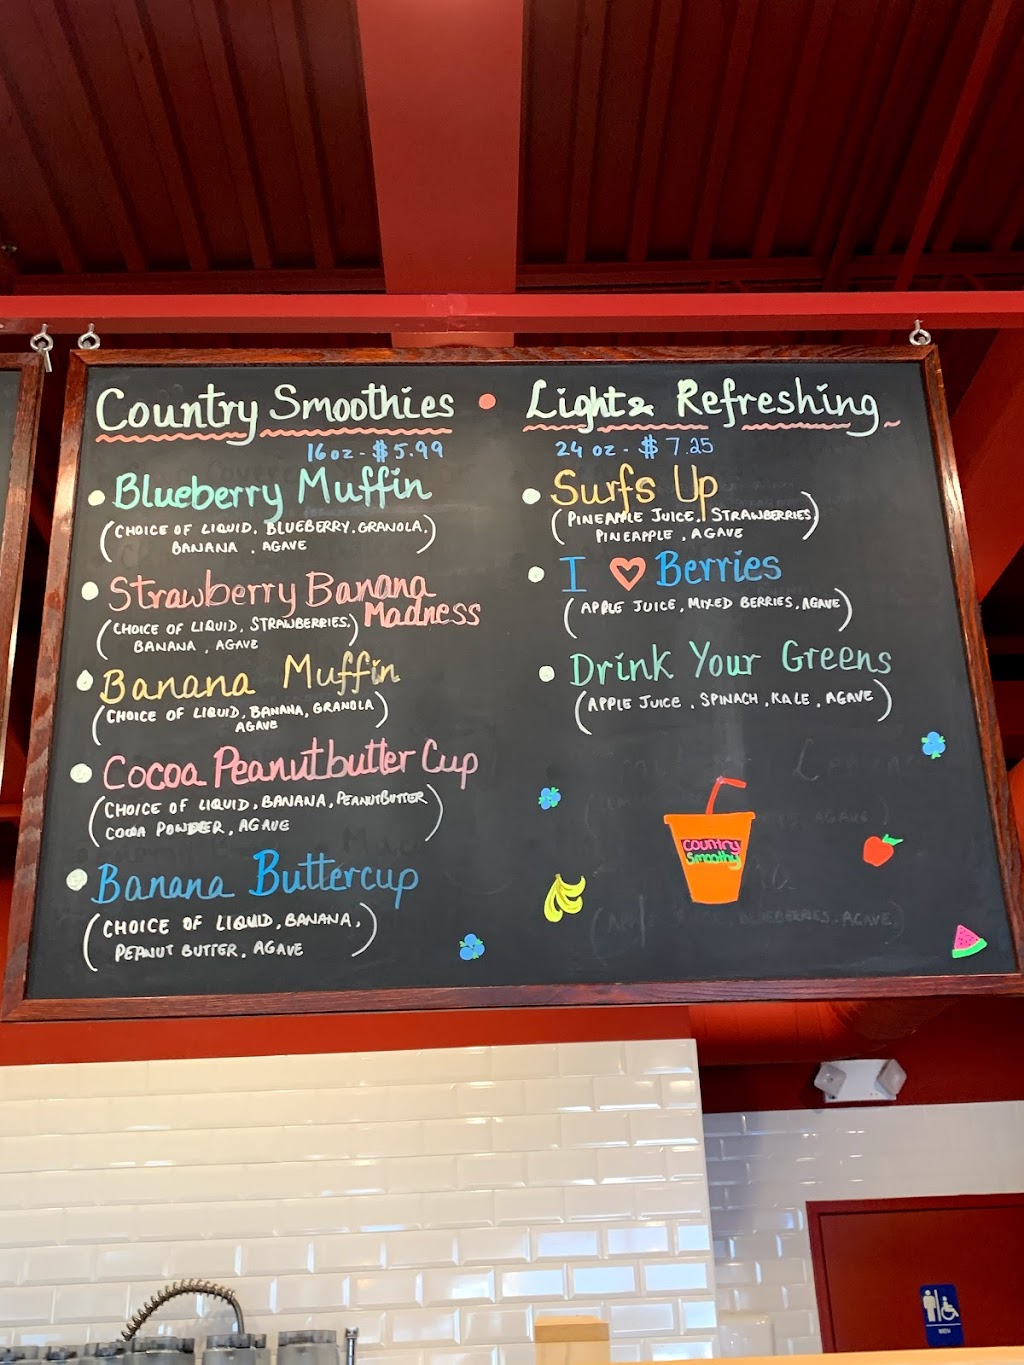 Country Smoothies • Light & Refreshing
16 oz - $5.99
24 oz - $ 7.25
Blueberry Muffin
(CHOICE OF LIQUID, BLUEBERRY, GRANOLA,
BANANA, AGAVE)
Strawberry Banana
Madness
(CHOICE OF LIQUID, STRAWBERRIES,
BANANA, AGAVE)
Banana Muffin
(CHOICE OF LIQUID, BANANA, GRANOLA
AGAVE)
Cocoa Peanutbutter Cup
(CHOICE OF LIQUID, BANANA, PEANUTBUTTER
COCOA POWDER, AGAVE)
Banana Buttercup
(CHOICE OF LIQUID, BANANA,
PEANUT BUTTER, AGAVE)
Surfs Up
(PINEAPPLE JUICE, STRAWBERRIES
PINEAPPLE, AGAVE)
I ♡ Berries
(APPLE JUICE, MIXED BERRIES, AGAVE)
Drink Your Greens
(APPLE JUICE, SPINACH, KALE, AGAVE)
Country
Smoothy
MEN